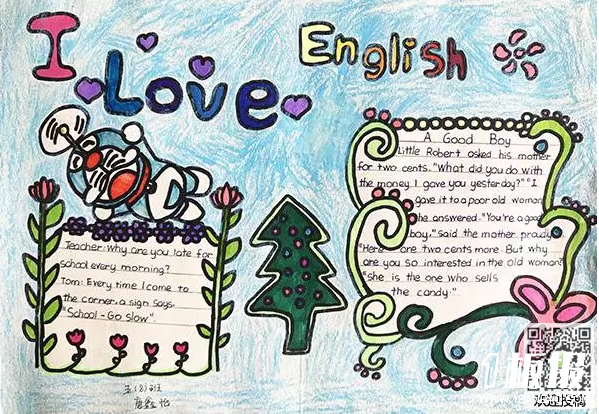 I Love English
A Good Boy
Little Robert asked his mother
for two cents. "What did you do with
the money I gave you yesterday?" "I
gave it to a poor old woman
he answered. "You're a good
boy." said the mother proudy
"Here are two cents more. But why
are you so interested in the old woman?
"She is the one who sells
the candy."
Teacher: Why are you late for
school every morning?
Tom: Every time I come to
the corner. a sign says.
"School-Go Slow".
五(8)班
欢迎投稿